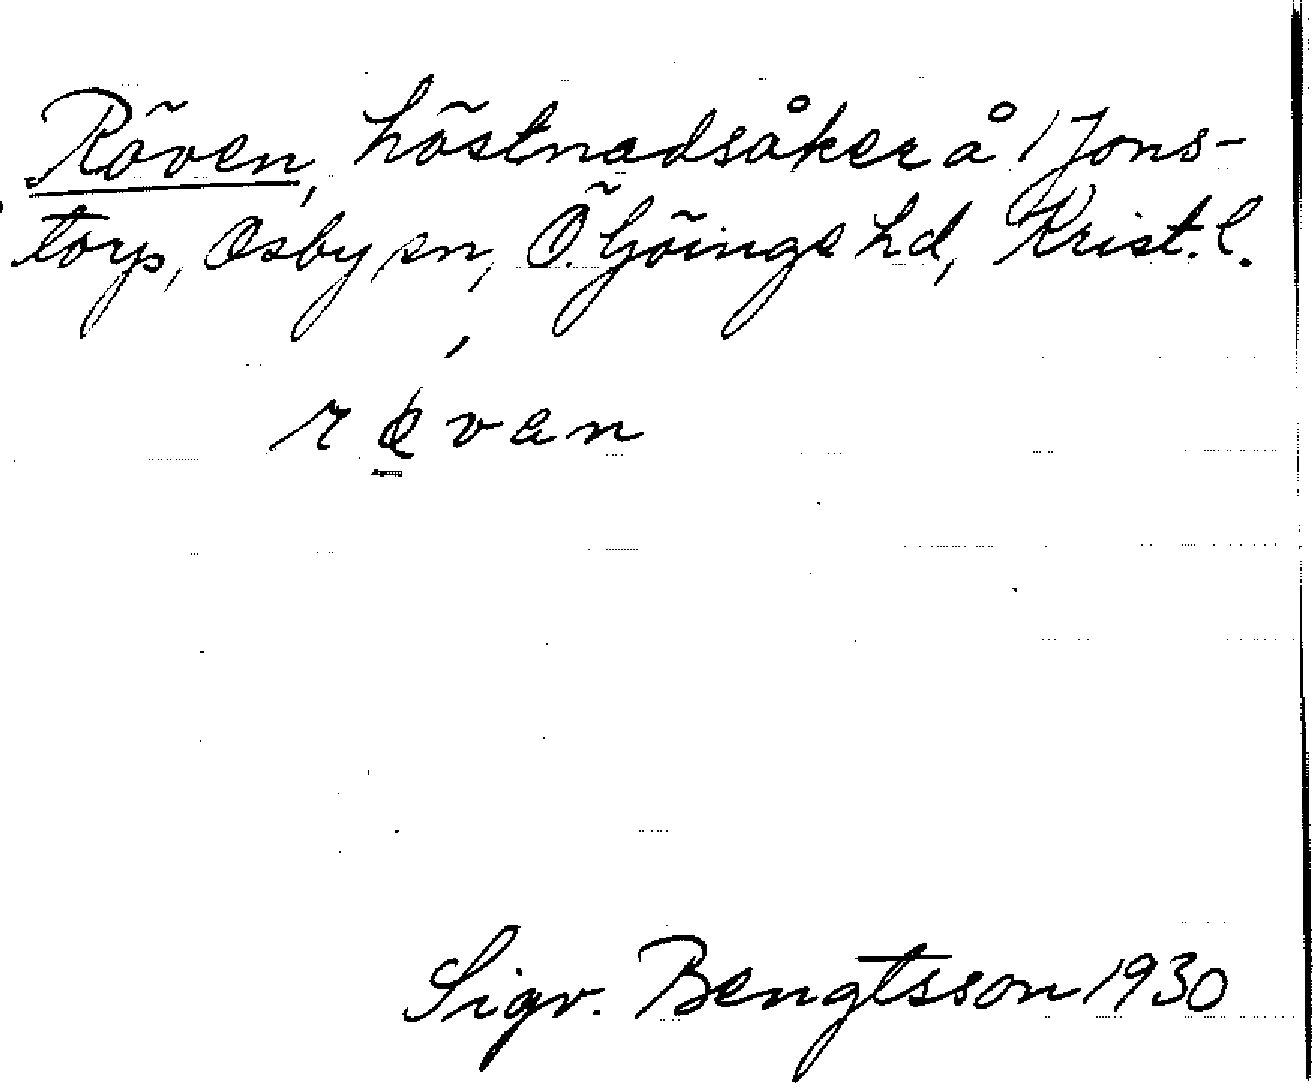 Röven, höstnadsåker å 1 Jons-
torp, Osby sn, Ö. Göinge hd, Krist. l.
Sigv. Bengtsson 1930